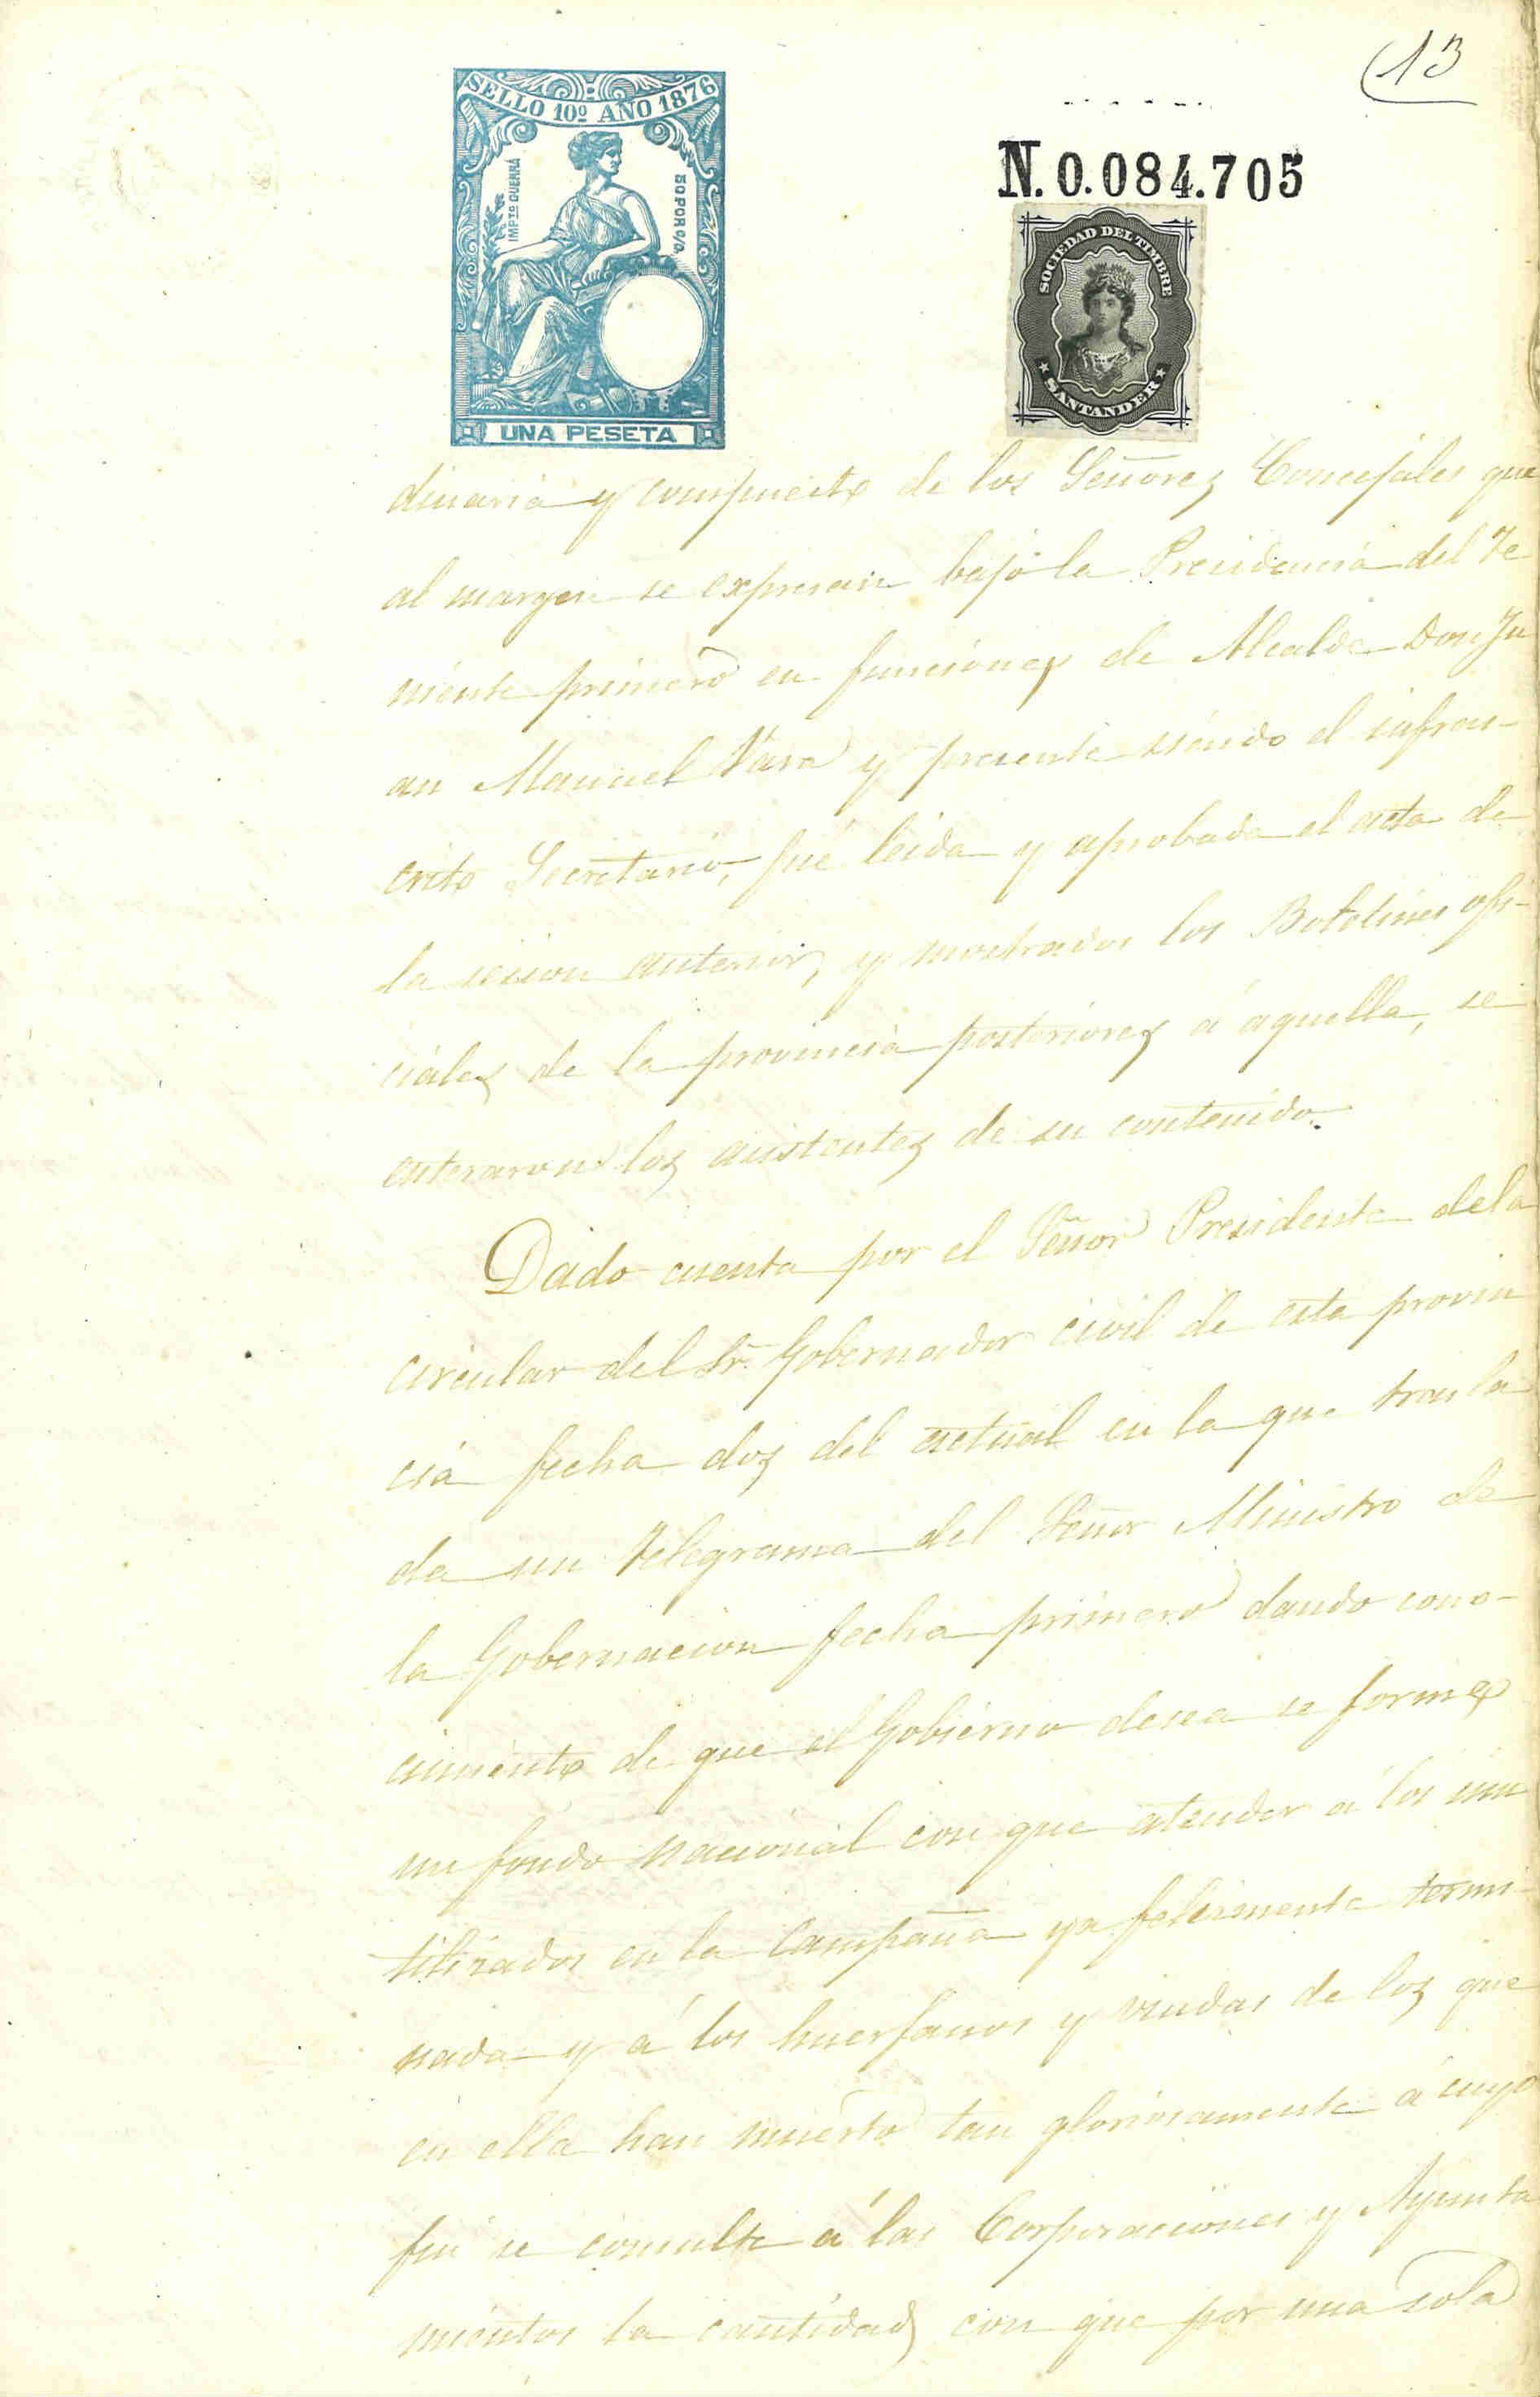 (13
SELLO 10º AÑO 1876
IMPTO GUERRA
50 POR O/O.
UNA PESETA
N. 0.084.705
SOCIEDAD DEL TIMBRE
SANTANDER
dinaria y compuesto de los Señores Concejales que
al margen se expresan bajo la Presidencia del Te
niente primero en funciones de Alcalde Don Ju
an Manuel Vara y presente siendo el infras-
crito Secretario, fué leida y aprobada el acta de
la sesion anterior, y mostrados los Boletines ofi-
ciales de la provincia posteriores á aquella, se
enteraron los asistentes de su contenido.
Dado cuenta por el Señor Presidente de la
circular del Sr. Gobernador civil de esta provin
cia fecha dos del actual en la que trasla
da un telegrama del Señor Ministro de
la Gobernacion fecha primero dando cono-
cimiento de que el Gobierno desea se forme
un fondo nacional con que atender á los inu
tilizados en la Campaña ya felizmente termi-
nada y á los huerfanos y viudas de los que
en ella han muerto tan gloriosamente á cuyo
fin se consulte á las Corporaciones y Ayunta
mientos la cantidad con que por una sola